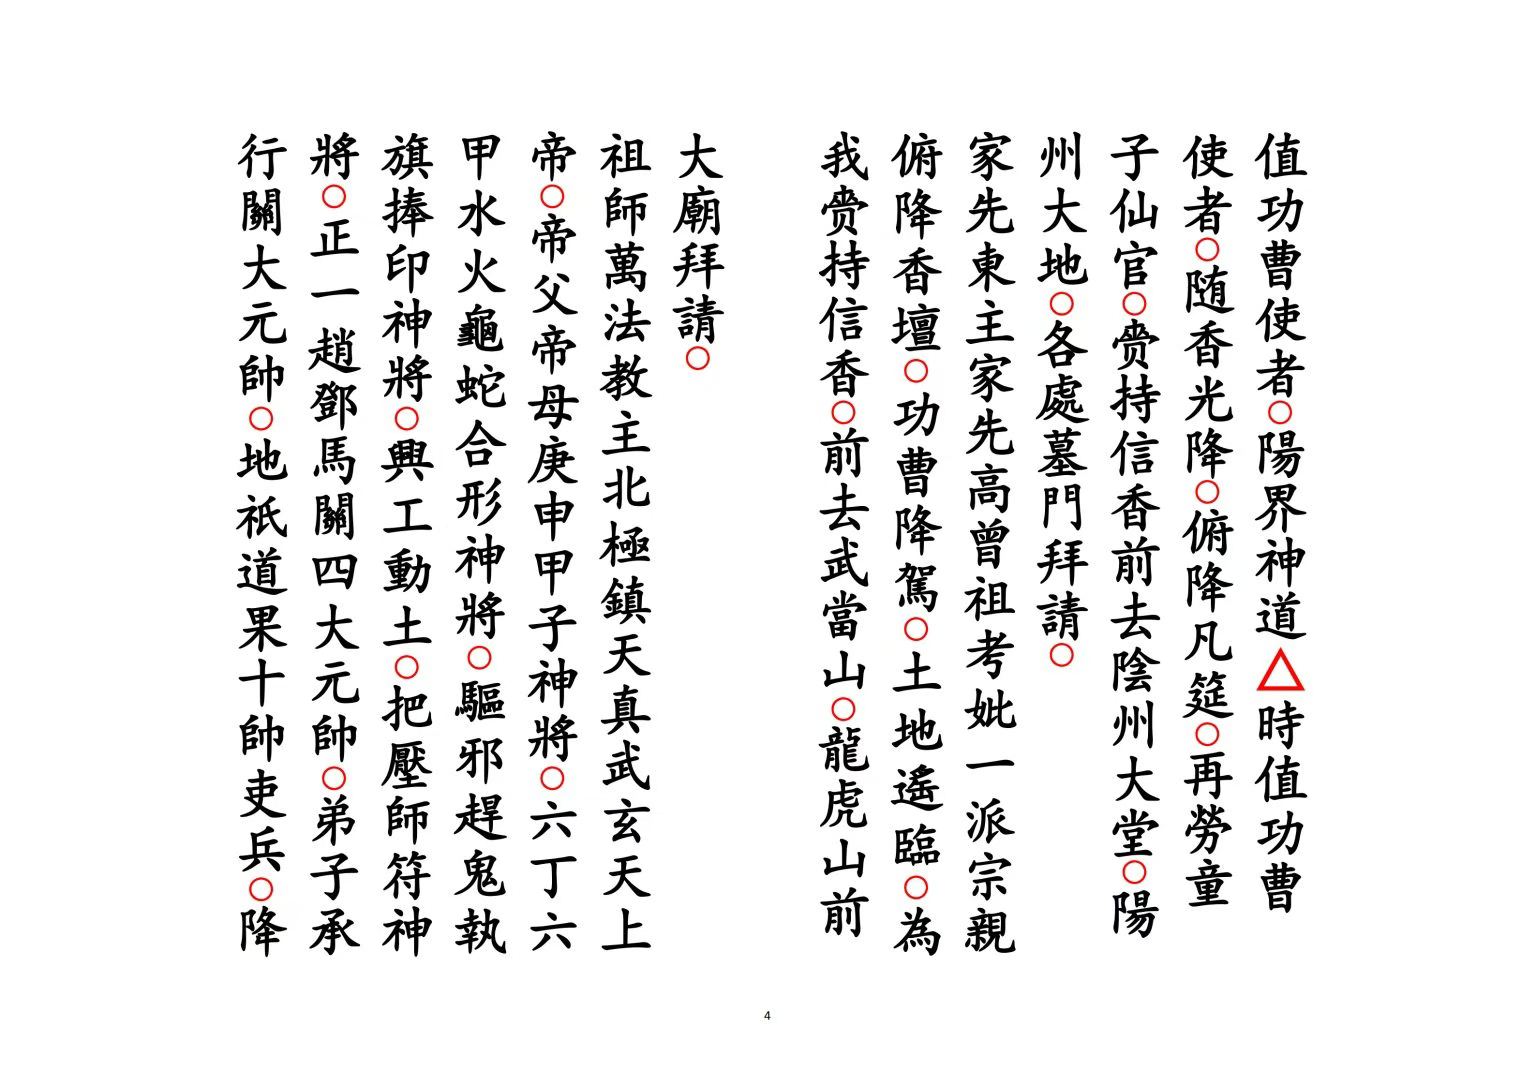 值功曹使者○陽界神道△時值功曹
使者○随香光降○俯降凡筵○再勞童
子仙官○赍持信香前去陰州大堂○陽
州大地○各處墓門拜請○
家先東主家先高曾祖考妣一派宗親
俯降香壇○功曹降駕○土地遙臨○為
我赍持信香○前去武當山○龍虎山前
大廟拜請○
祖師萬法教主北極鎮天真武玄天上
帝○帝父帝母庚申甲子神將○六丁六
甲水火龜蛇合形神將○驅邪趕鬼執
旗捧印神將○興工動土○把壓師符神
將○正一趙鄧馬關四大元帥○弟子承
行關大元帥○地祇道果十帥吏兵○降
4